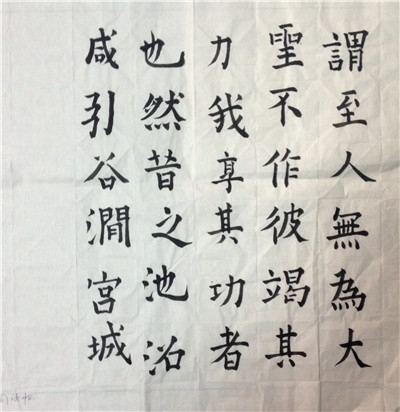 謂至人無為大
聖不作彼竭其
力我享其功者
也然昔之池沼
咸引谷澗宮城